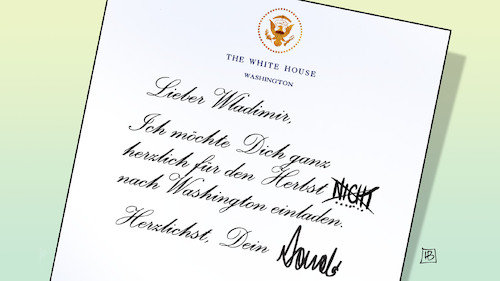 THE WHITE HOUSE
WASHINGTON
Lieber Wladimir,
Ich möchte Dich ganz
herzlich für den Herbst NICHT
nach Washington einladen.
Herzlichst, Dein Donald